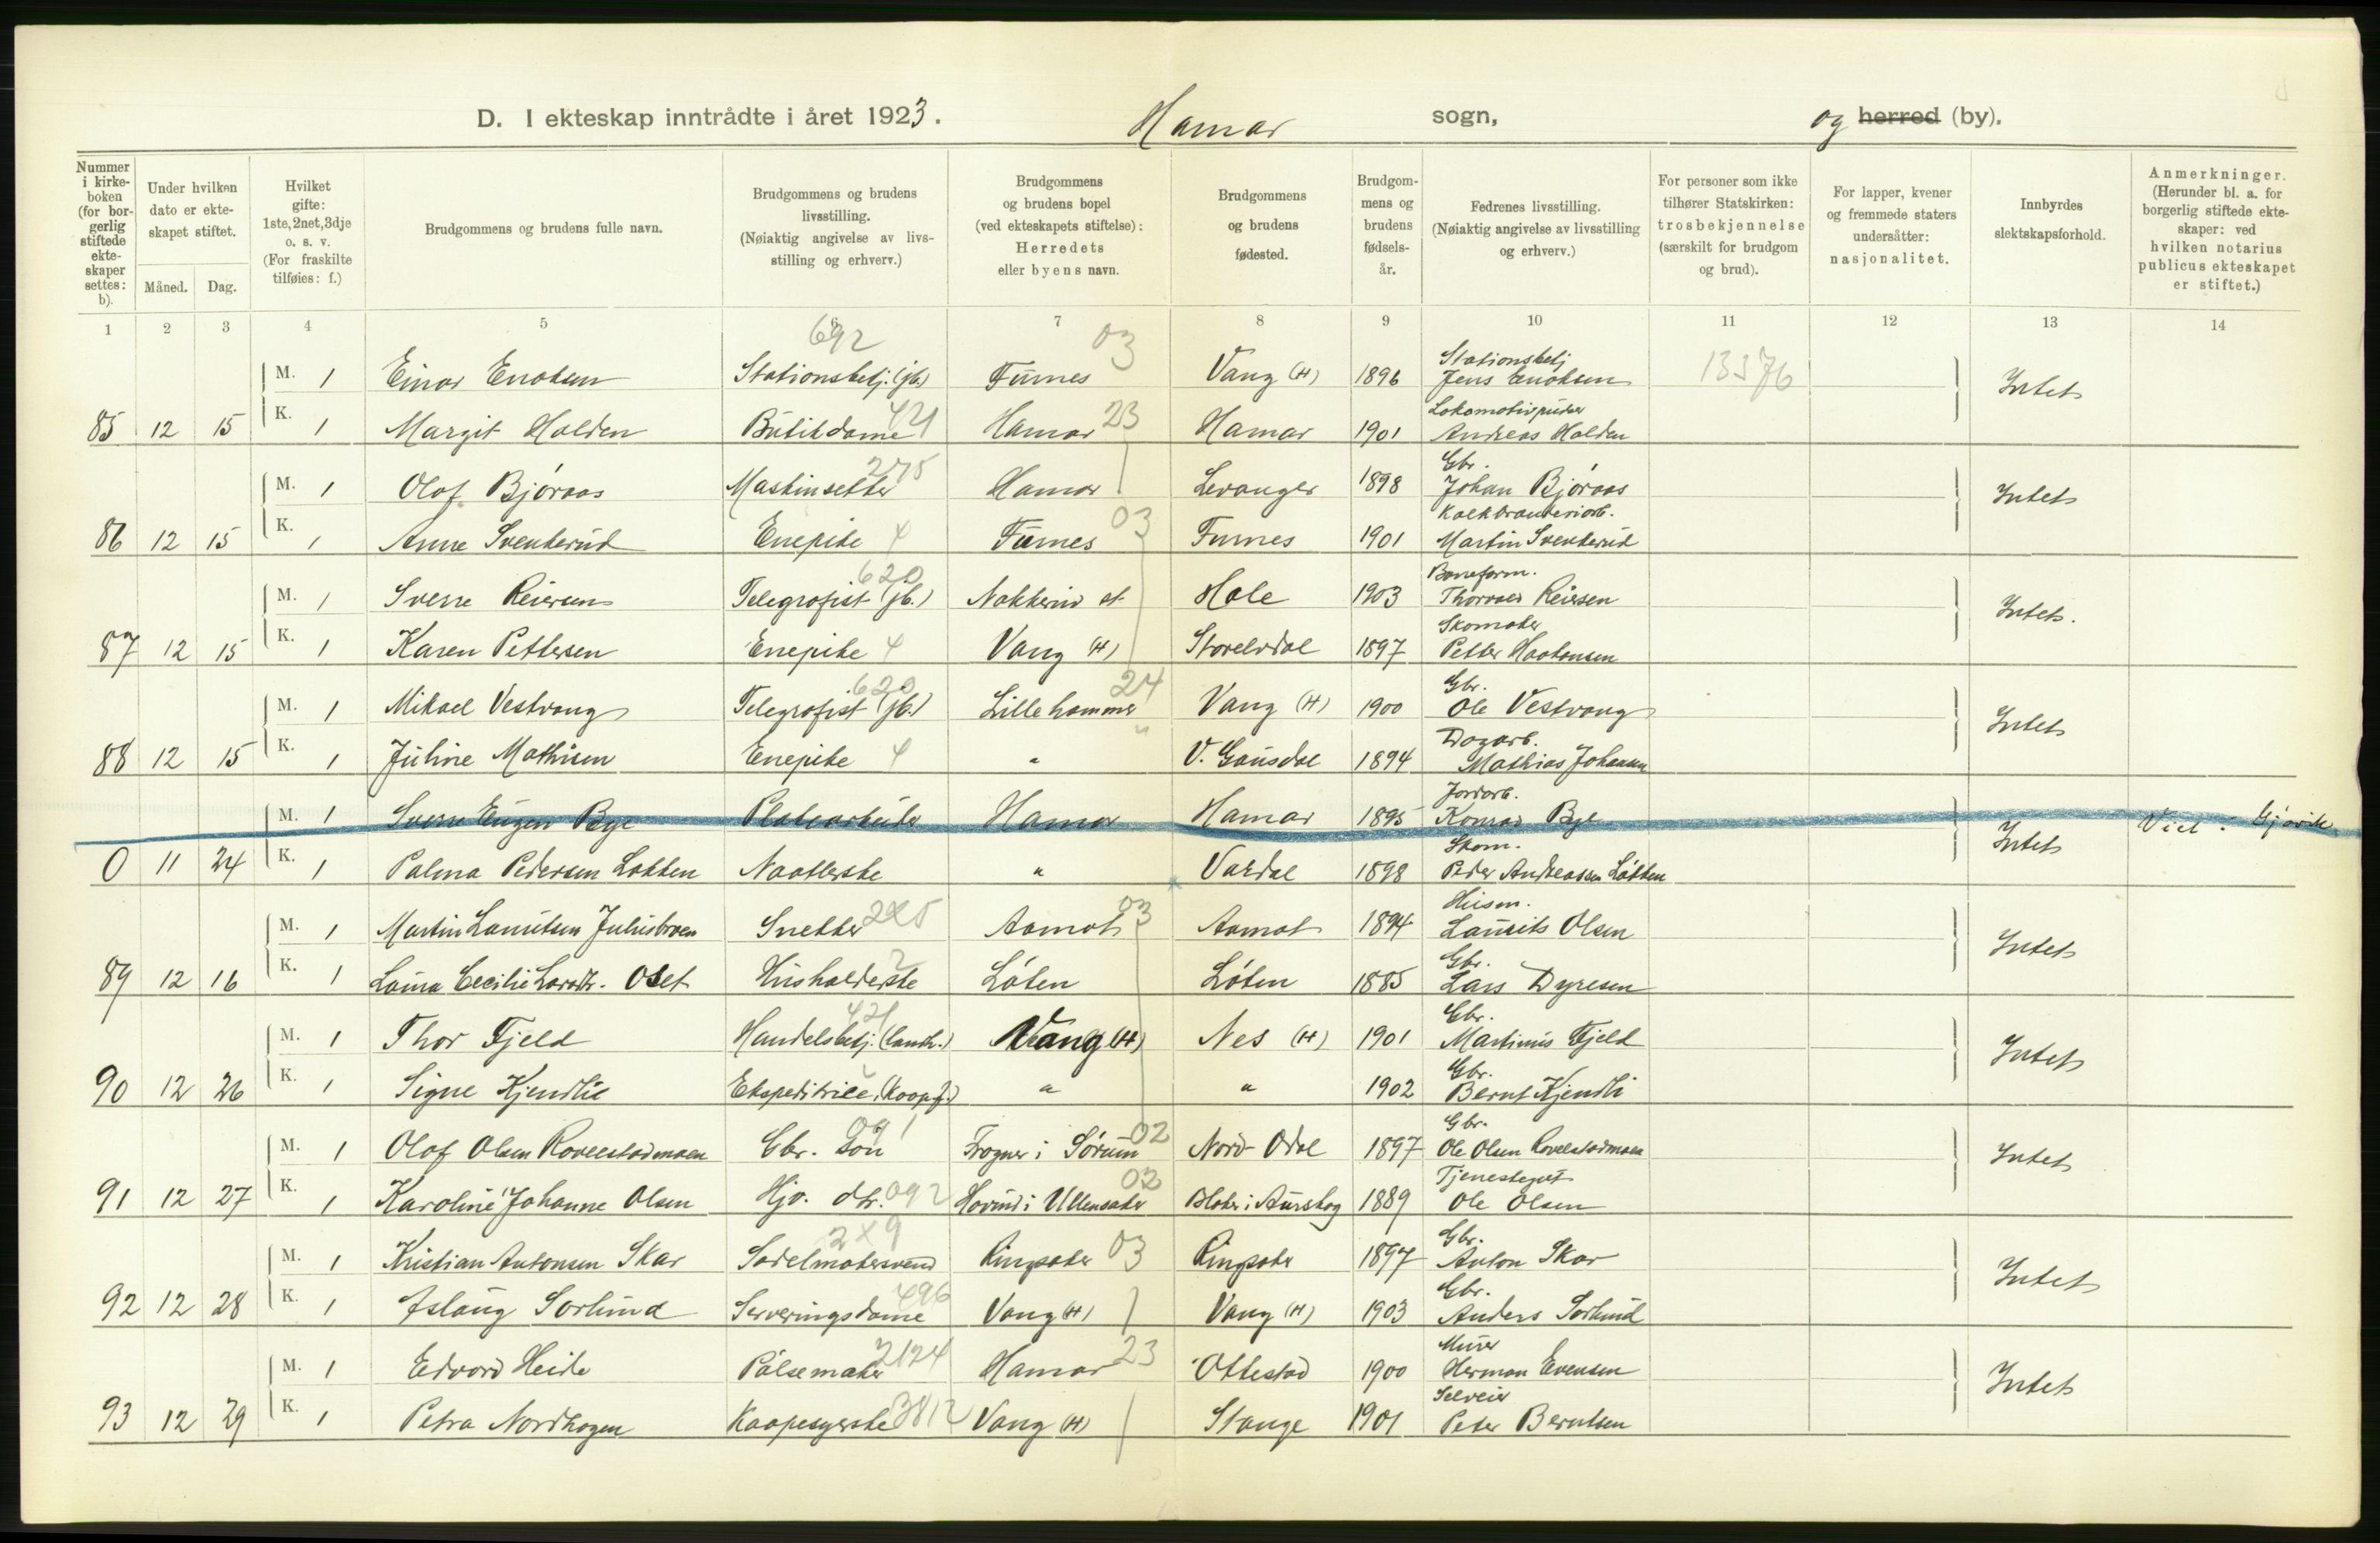 D. I ekteskap inntrådte i året 1923. Hamar sogn, og herred (by).
Nummer i kirkeboken (for borgerlig stiftede ekteskaper settes: b).
Under hvilken dato er ekteskapet stiftet.
Måned. Dag.
Hvilket gifte: 1ste, 2net, 3dje o. s. v. (For fraskilte tilføies: f.)
Brudgommens og brudens fulle navn.
Brudgommens og brudens livsstilling. (Nøiaktig angivelse av livsstilling og erhverv.)
Brudgommens og brudens bopel (ved ekteskapets stiftelse): Herredets eller byens navn.
Brudgommens og brudens fødested.
Brudgommens og brudens fødselsår.
Fedrenes livsstilling. (Nøiaktig angivelse av livsstilling og erhverv.)
For personer som ikke tilhører Statskirken: trosbekjennelse (særskilt for brudgom og brud).
For lapper, kvener og fremmede staters undersåtter: nasjonalitet.
Innbyrdes slektskapsforhold.
Anmerkninger. (Herunder bl. a. for borgerlig stiftede ekteskaper: ved hvilken notarius publicus ekteskapet er stiftet.)
1 2 3 4 5 6 7 8 9 10 11 12 13 14
692 03 Stationsbetj
M. 1 Einar Enoksen Stationsbetj. (jb.) Furnes Vang (H) 1896 Jens Enoksen 13376 Intet
421 23 Lokomotivpudser
85 12 15 K. 1 Margit Halden Butikdame Hamar Hamar 1901 Andreas Halden
275 Gbr.
M. 1 Olaf Bjøraas Maskinsetter Hamar Levanger 1898 Johan Bjøraas Intet
03 Kalkbrenderiarb.
86 12 15 K. 1 Anne Svenkerud Enepike 4 Furnes Furnes 1901 Martin Svenkerud
620
M. 1 Sverre Reiersen Telegrafist (jb.) Nakkerud st Hole 1903 Thorvald Reiersen Intet.
Skomaker
87 12 15 K. 1 Karen Pettersen Enepike 4 Vang (H) Storelvdal 1897 Petter Haakonsen
620 24 Gbr.
M. 1 Mikael Vestvang Telegrafist (jb.) Lillehammer Vang (H) 1900 Ole Vestvang Intet
" Dagarb.
88 12 15 K. 1 Juline Mathisen Enepike 4 " V. Gausdal 1894 Mathias Johansen
Jordarb.
M. 1 Sverre Eugen Bye Platearbeider Hamar Hamar 1895 Konrad Bye Intet Viet i Gjøvik
Skom.
0 11 24 K. 1 Palma Pedersen Løkken Naatlerske " Vardal 1898 Peder Andreassen Løkken
225 03 Husm.
M. 1 Martin Lauritsen Julusbroen Snekker Aamot Aamot 1894 Laurits Olsen Intet
2 Gbr.
89 12 16 K. 1 Laura Cecilie Larsdtr. Oset Husholderske Løten Løten 1885 Lars Dyresen
421 Gbr.
M. 1 Thor Fjeld Handelsbetj. (landh.) Vang (H) Nes (H) 1901 Martinus Fjeld Intet
Gbr.
90 12 26 K. 1 Signe Kjendlie Ekspeditrice (Koopf.) " " 1902 Bernt Kjendli
091 02 Gbr.
M. 1 Olaf Olsen Roverstadmoen Gbr. søn Frogner i Sørum Nord-Odal 1897 Ole Olsen Roverstadmoen Intet
02 Tjenestegut
91 12 27 K. 1 Karoline Johanne Olsen Hjv. dtr. 092 Hovind i Ullensaker Blaker i Aurskog 1889 Ole Olsen
249 Gbr.
M. 1 Kristian Antonsen Skar Sadelmakersvend Ringsaker 03 Ringsaker 1897 Anton Skar Intet
496 Gbr.
92 12 28 K. 1 Aslaug Sorlund Serveringsdame Vang (H) Vang (H) 1903 Anders Sorlund
2124 23 Murer
M. 1 Edvard Heide Pølsemaker Hamar Ottestad 1900 Herman Evensen Intet
Selveier
93 12 29 K. 1 Petra Nordhagen Kaapesyerske 3812 Vang (H) Stange 1901 Peter Berntsen